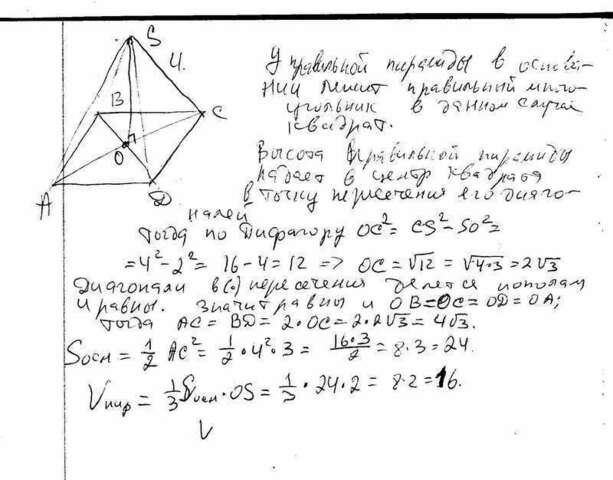 S
4.
B
C
O
A
D
У правильной пирамиды в основа-
нии лежит правильный мно-
угольник в данном случае
квадрат.
Высота правильной пирамиды
падает в центр квадрата
в точку пересечения его диаго-
налей
Тогда по Пифагору OC² = CS² - SO² =
= 4² - 2² = 16 - 4 = 12 => OC = √12 = √4·3 = 2√3
Диагонали в (·) пересечения делятся пополам
и равны. Значит равны и OB = OC = OD = OA;
Тогда AC = BD = 2·OC = 2·2√3 = 4√3.
Sосн = 1/2 AC² = 1/2 · 4² · 3 = 16·3/2 = 8·3 = 24.
Vпир = 1/3 Sосн · OS = 1/3 · 24 · 2 = 8·2 = 16.
V